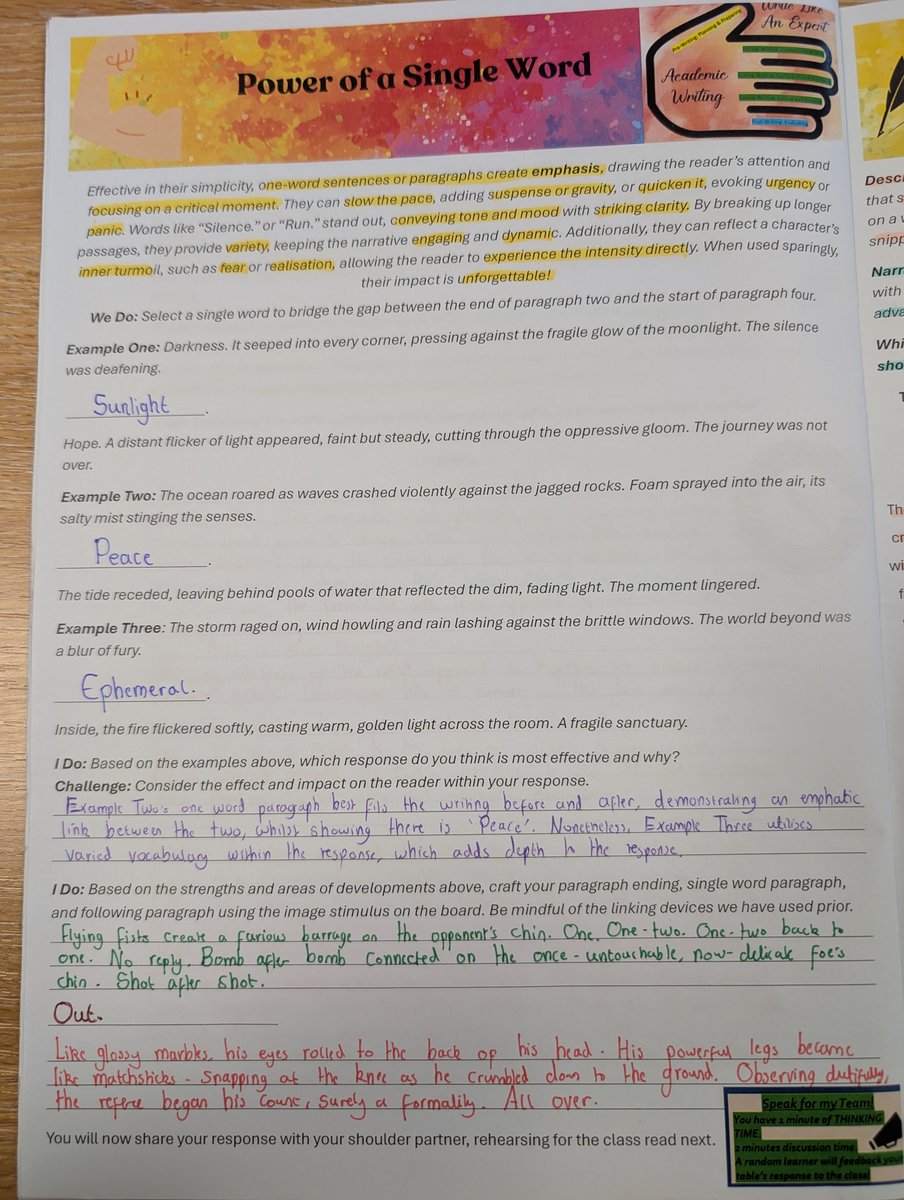 Power of a Single Word
Write Like
An Expert
Pre-Writing: Planning & Preparing
Academic
Writing
Effective in their simplicity, one-word sentences or paragraphs create emphasis, drawing the reader's attention and
focusing on a critical moment. They can slow the pace, adding suspense or gravity, or quicken it, evoking urgency or
panic. Words like "Silence." or "Run." stand out, conveying tone and mood with striking clarity. By breaking up longer
passages, they provide variety, keeping the narrative engaging and dynamic. Additionally, they can reflect a character's
inner turmoil, such as fear or realisation, allowing the reader to experience the intensity directly. When used sparingly,
their impact is unforgettable!
We Do: Select a single word to bridge the gap between the end of paragraph two and the start of paragraph four.
Example One: Darkness. It seeped into every corner, pressing against the fragile glow of the moonlight. The silence
was deafening.
Sunlight.
Hope. A distant flicker of light appeared, faint but steady, cutting through the oppressive gloom. The journey was not
over.
Example Two: The ocean roared as waves crashed violently against the jagged rocks. Foam sprayed into the air, its
salty mist stinging the senses.
Peace.
The tide receded, leaving behind pools of water that reflected the dim, fading light. The moment lingered.
Example Three: The storm raged on, wind howling and rain lashing against the brittle windows. The world beyond was
a blur of fury.
Ephemeral..
Inside, the fire flickered softly, casting warm, golden light across the room. A fragile sanctuary.
I Do: Based on the examples above, which response do you think is most effective and why?
Challenge: Consider the effect and impact on the reader within your response.
Example Two's one word paragraph best fits the writing before and after, demonstrating an emphatic
link between the two, whilst showing there is 'Peace'. Nonetheless, Example Three utilises
varied vocabulary within the response, which adds depth to the response.
I Do: Based on the strengths and areas of developments above, craft your paragraph ending, single word paragraph,
and following paragraph using the image stimulus on the board. Be mindful of the linking devices we have used prior.
Flying fists create a furious barrage on the opponent's chin. One. One-two. One-two back to
one. No reply. Bomb after bomb connected on the once-untouchable, now-delicate foe's
chin. Shot after shot.
Out.
Like glossy marbles, his eyes rolled to the back of his head. His powerful legs became
like matchsticks - snapping at the knee as he crumbled down to the ground. Observing dutifully,
the referee began his count, surely a formality. All over.
You will now share your response with your shoulder partner, rehearsing for the class read next.
Speak for my Team!
You have 1 minute of THINKING
TIME.
2 minutes discussion time.
A random learner will feedback your
table's response to the class!
Descr
that s
on a v
snipp
Narr
with
adva
Whi
sho
T
Th
cr
wi
f